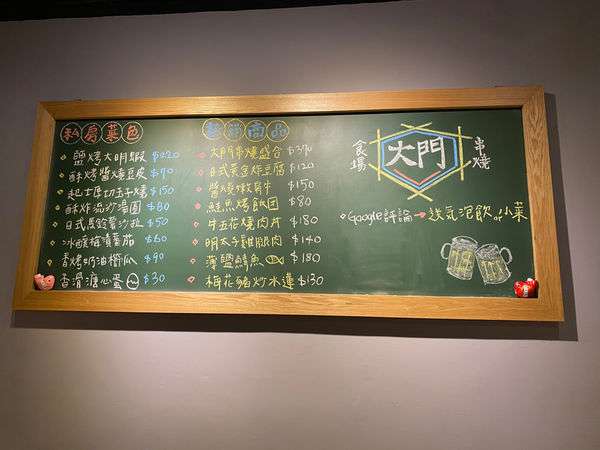 私房菜色
鹽烤大明蝦 $220
酥烤醬燒豆皮 $70
起士厚切玉子燒 $150
酥炸流沙湯圓 $80
日式馬鈴薯沙拉 $50
冰釀梅漬番茄 $60
香烤奶油櫛瓜 $90
香滑溏心蛋 $30
熱門商品
大門串燒盛合 $370
日式黃金炸豆腐 $120
醬燒嫩肩牛 $150
鮭魚烤飯糰 $80
牛五花燒肉片 $180
明太子雞腿肉 $140
薄鹽鯖魚 $180
梅花豬炒水蓮 $130
食場 大門 串燒
Google評論→送気泡飲or小菜